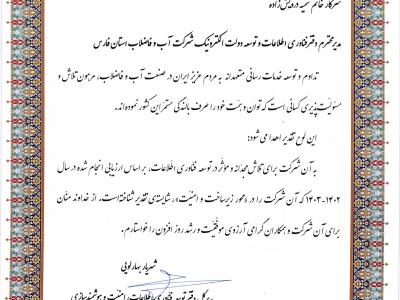 سرکار خانم سمیه درویش‌زاده
مدیر محترم دفتر فناوری اطلاعات و توسعه دولت الکترونیک شرکت آب و فاضلاب استان فارس
تداوم و توسعه خدمات رسانی متعهدانه به مردم عزیز ایران در صنعت آب و فاضلاب، مرهون تلاش و
مسئولیت‌پذیری کسانی است که توان و همت خود را صرف بالندگی مستمر این کشور نموده‌اند.
این لوح تقدیر اهدا می شود:
به آن شرکت برای تلاش مجدانه و مؤثر در توسعه فناوری اطلاعات، بر اساس ارزیابی انجام شده در سال
۱۴۰۲-۱۴۰۳ که آن شرکت را در «محور زیرساخت و امنیت»، شایسته‌ی تقدیر شناخته است. از خداوند منان
برای آن شرکت و همکاران گرامی آرزوی موفقیت و رشد روز افزون را خواستارم.
شهریار بهارلویی
مدیرکل دفتر توسعه فناوری اطلاعات، امنیت و هوشمندسازی